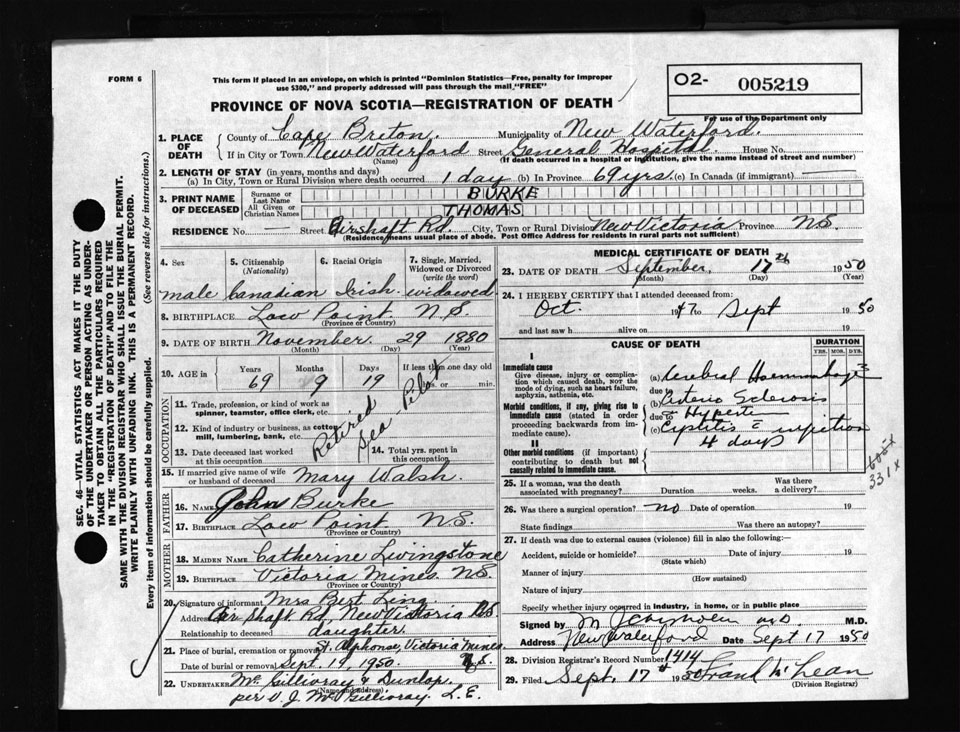 FORM 6
This form if placed in an envelope, on which is printed "Dominion Statistics—Free, penalty for improper
use $300," and properly addressed will pass through the mail "FREE"
O2- 005219
For use of the Department only
PROVINCE OF NOVA SCOTIA—REGISTRATION OF DEATH
SEC. 46—VITAL STATISTICS ACT MAKES IT THE DUTY
OF THE UNDERTAKER OR PERSON ACTING AS UNDER-
TAKER TO OBTAIN ALL THE PARTICULARS REQUIRED
IN THE "REGISTRATION OF DEATH" AND TO FILE THE
SAME WITH THE DIVISION REGISTRAR WHO SHALL ISSUE THE BURIAL PERMIT.
WRITE PLAINLY WITH UNFADING INK. THIS IS A PERMANENT RECORD.
Every item of information should be carefully supplied. (See reverse side for instructions.)
1. PLACE OF DEATH County of Cape Breton. Municipality of New Waterford.
If in City or Town New Waterford Street General Hospital. House No.
(Name) (If death occurred in a hospital or institution, give the name instead of street and number)
2. LENGTH OF STAY (in years, months and days)
(a) In City, Town or Rural Division where death occurred 1 day (b) In Province 69 yrs. (c) In Canada (if immigrant) —
3. PRINT NAME OF DECEASED Surname or Last Name BURKE
All Given or Christian Names THOMAS
RESIDENCE No. — Street Airshaft Rd. City, Town or Rural Division New Victoria Province N.S.
(Residence means usual place of abode. Post Office Address for residents in rural parts not sufficient)
4. Sex 5. Citizenship (Nationality) 6. Racial Origin 7. Single, Married, Widowed or Divorced (write the word)
male Canadian Irish widowed
8. BIRTHPLACE Low Point N.S.
(Province or Country)
9. DATE OF BIRTH November 29 1880
(Month) (Day) (Year)
10. AGE in Years Months Days If less than one day old
69 9 19 hrs. or min.
OCCUPATION
11. Trade, profession, or kind of work as
spinner, teamster, office clerk, etc.
12. Kind of industry or business, as cotton
mill, lumbering, bank, etc.
Retired Sea-Pilot
13. Date deceased last worked
at this occupation
14. Total yrs. spent in
this occupation
15. If married give name of wife
or husband of deceased Mary Walsh.
FATHER
16. NAME John Burke
17. BIRTHPLACE Low Point N.S.
(Province or Country)
MOTHER
18. MAIDEN NAME Catherine Livingstone
19. BIRTHPLACE Victoria Mines N.S.
(Province or Country)
20. Signature of informant Mrs Bert Ling.
Address Air Shaft Rd, New Victoria N.S
Relationship to deceased daughter.
21. Place of burial, cremation or removal St. Alphonse, Victoria Mines.
Date of burial or removal Sept. 19, 1950. N.S.
22. UNDERTAKER McGillivray & Dunlop.
(Name and address)
per V. J. McGillivray. L.E.
MEDICAL CERTIFICATE OF DEATH
23. DATE OF DEATH September 17th 1950
(Month) (Day) (Year)
24. I HEREBY CERTIFY that I attended deceased from:
Oct. 1947 to Sept 1950
and last saw h alive on 19
CAUSE OF DEATH
DURATION
YRS. MOS. DYS.
I
Immediate cause
Give disease, injury or complica-
tion which caused death, NOT the
mode of dying, such as heart failure,
asphyxia, asthenia, etc.
(a) Cerebral Haemorrhage 3
due to
Morbid conditions, if any, giving rise to
immediate cause (stated in order
proceeding backwards from im-
mediate cause).
(b) Arterio Sclerosis
due to Hyperte
(c) Cystitis infection
4 days
II
Other morbid conditions (if important)
contributing to death but not
causally related to immediate cause.
331 x
25. If a woman, was the death
associated with pregnancy? Duration weeks. Was there
a delivery?
26. Was there a surgical operation? no Date of operation 19
State findings Was there an autopsy?
27. If death was due to external causes (violence) fill in also the following:—
Accident, suicide or homicide? Date of injury 19
(State which)
Manner of injury
(How sustained)
Nature of injury
Specify whether injury occurred in industry, in home, or in public place
Signed by M.D. M.D.
Address New Waterford Date Sept 17 1950
28. Division Registrar's Record Number 1414
29. Filed Sept. 17th 1950 Frank McLean
(Division Registrar)